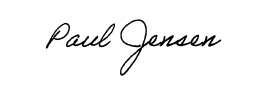 Paul Jensen